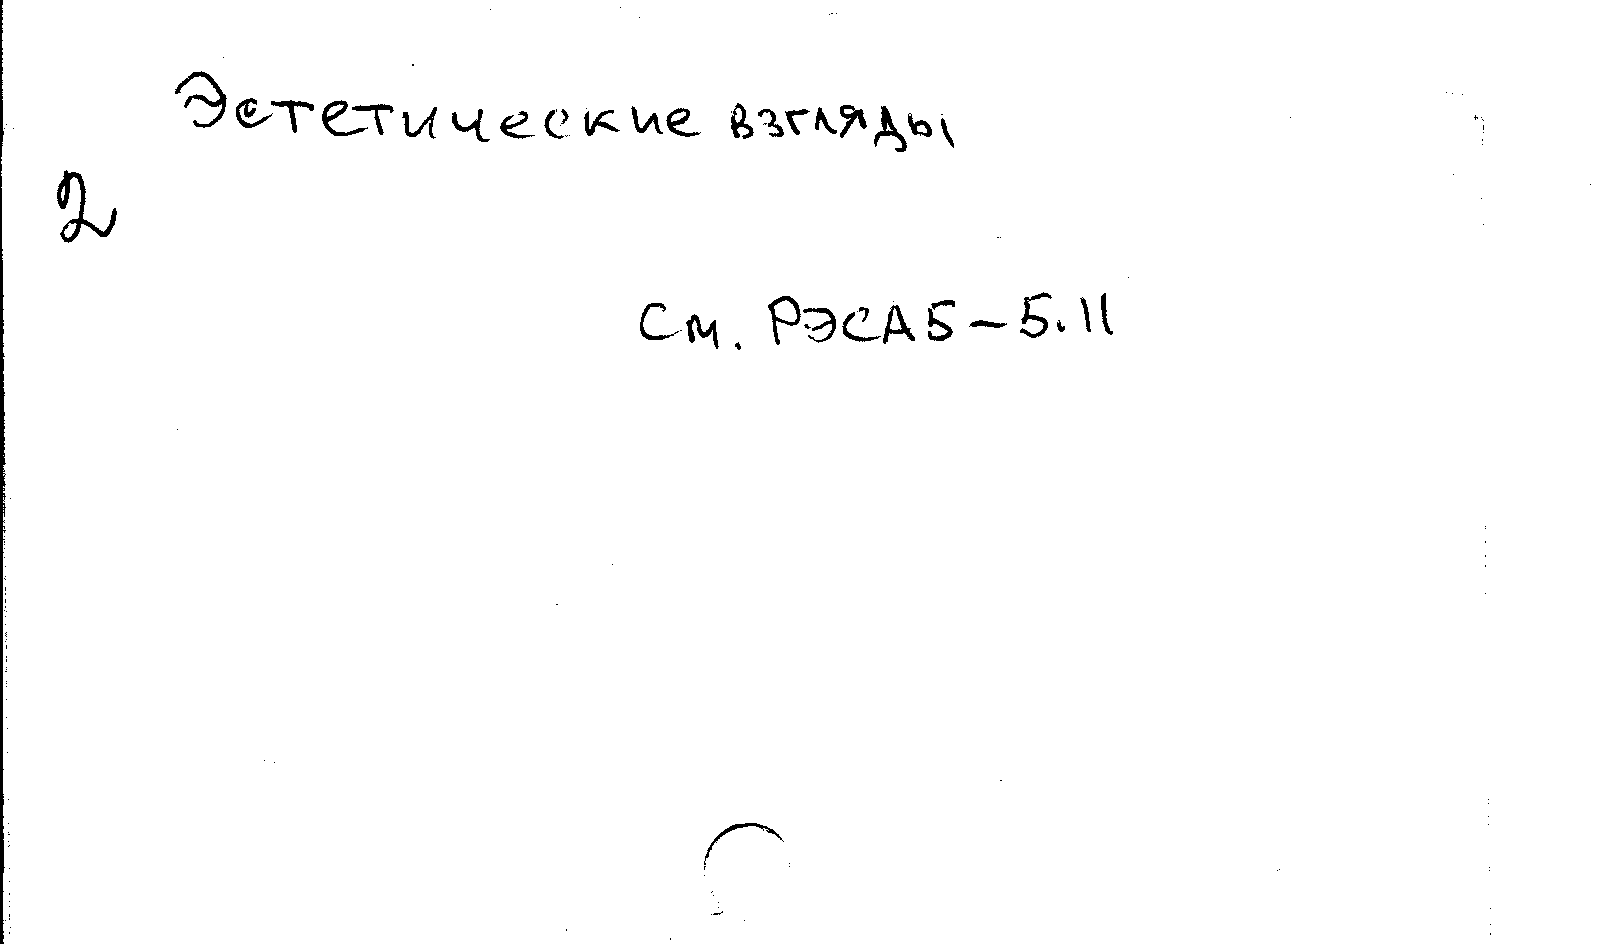 Эстетические взгляды
2
См. РЭСА5-5.11